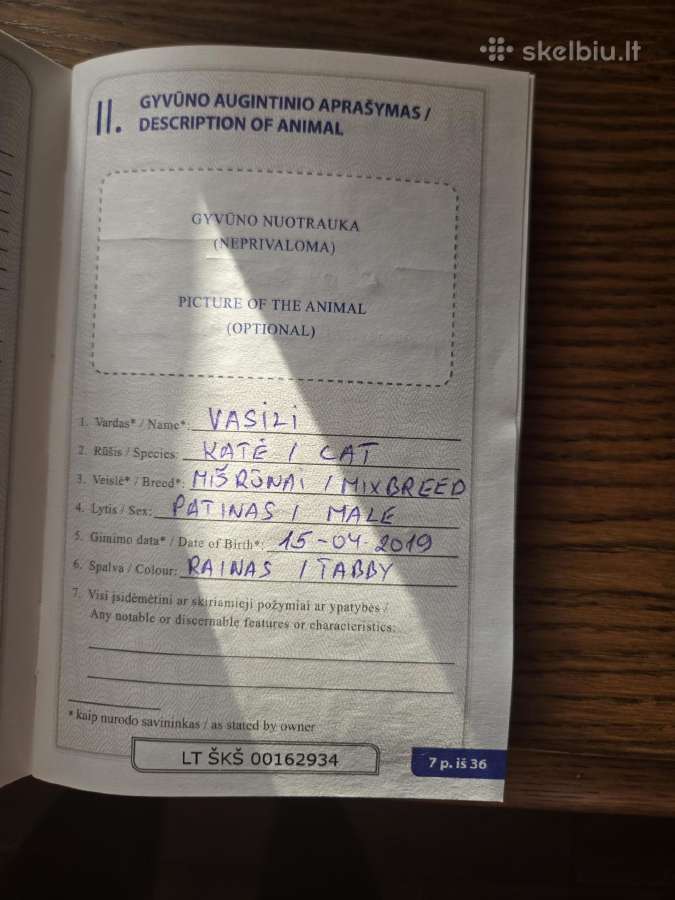 skelbiu.lt
II. GYVŪNO AUGINTINIO APRAŠYMAS /
DESCRIPTION OF ANIMAL
GYVŪNO NUOTRAUKA
(NEPRIVALOMA)
PICTURE OF THE ANIMAL
(OPTIONAL)
1. Vardas* / Name*: VASILI
2. Rūšis / Species: KATĖ / CAT
3. Veislė* / Breed*: MIŠRŪNAI / MIXBREED
4. Lytis / Sex: PATINAS / MALE
5. Gimimo data* / Date of Birth*: 15-04-2019
6. Spalva / Colour: RAINAS / TABBY
7. Visi įsidėmėtini ar skiriamieji požymiai ar ypatybės /
Any notable or discernable features or characteristics:
* kaip nurodo savininkas / as stated by owner
LT ŠKŠ 00162934
7 p. iš 36